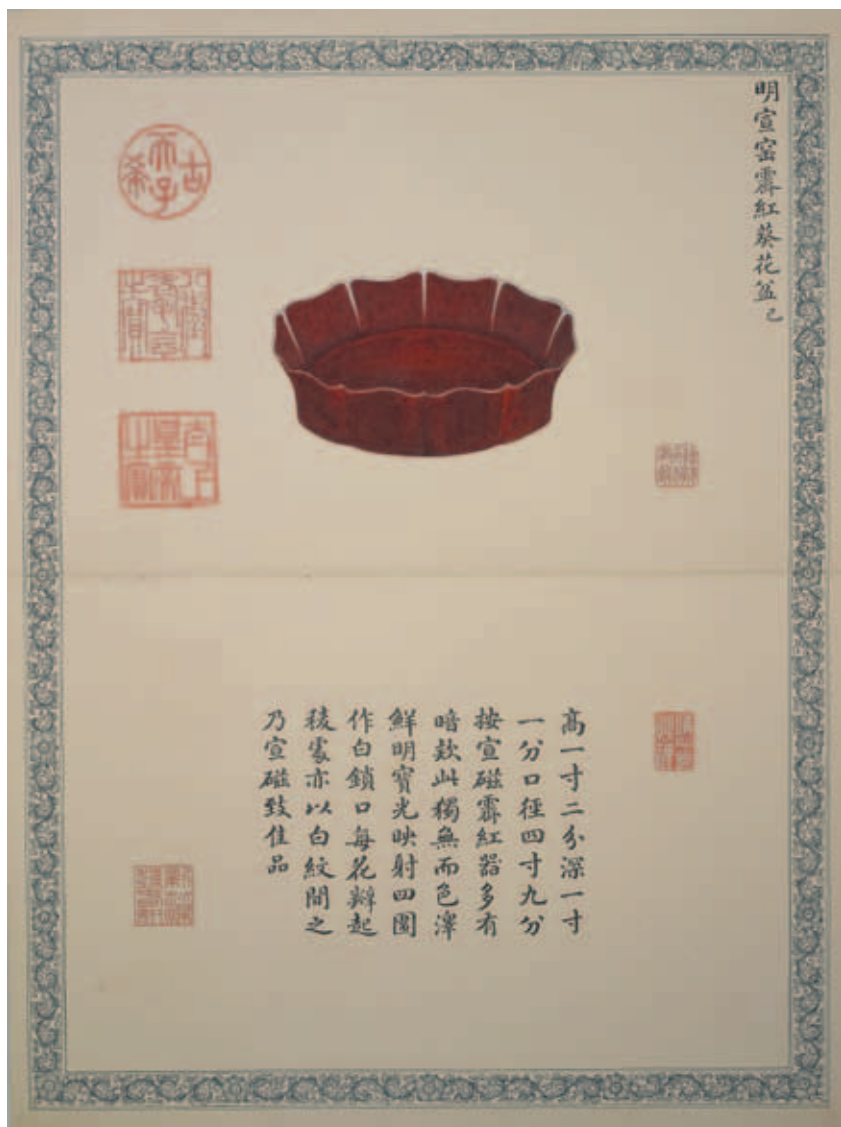 明宣窑霽紅葵花盆己
古希天子
八徵耄念之寶
太上皇帝之寶
高一寸二分深一寸
一分口徑四寸九分
按宣磁霽紅器多有
暗款此獨無而色澤
鮮明寶光映射四圍
作白鎖口每花瓣起
稜處亦以白紋間之
乃宣磁致佳品